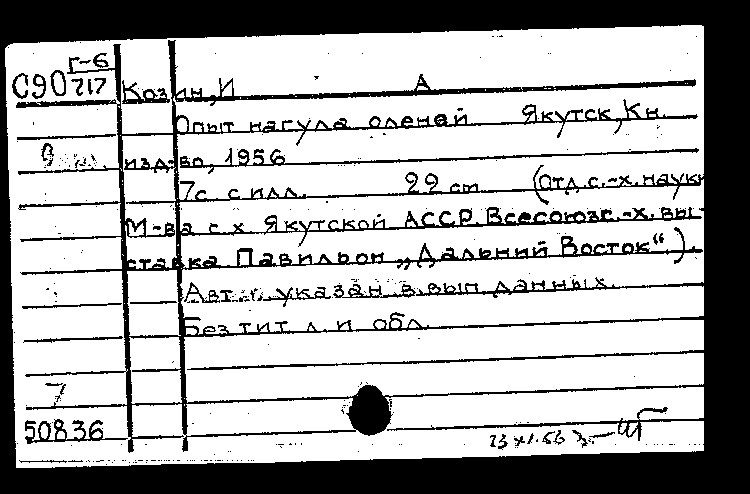 Г-6
С90 717
Козан, И А
Опыт нагула оленей Якутск, Кн.
изд-во, 1956
7с с илл. 22 см (Отд с.-х. науки
М-ва с х Якутской АССР. Всесоюз с.-х. вы-
ставка Павильон „Дальний Восток“).
Авт. указан в вып данных.
Без тит л. и обл.
7
50836